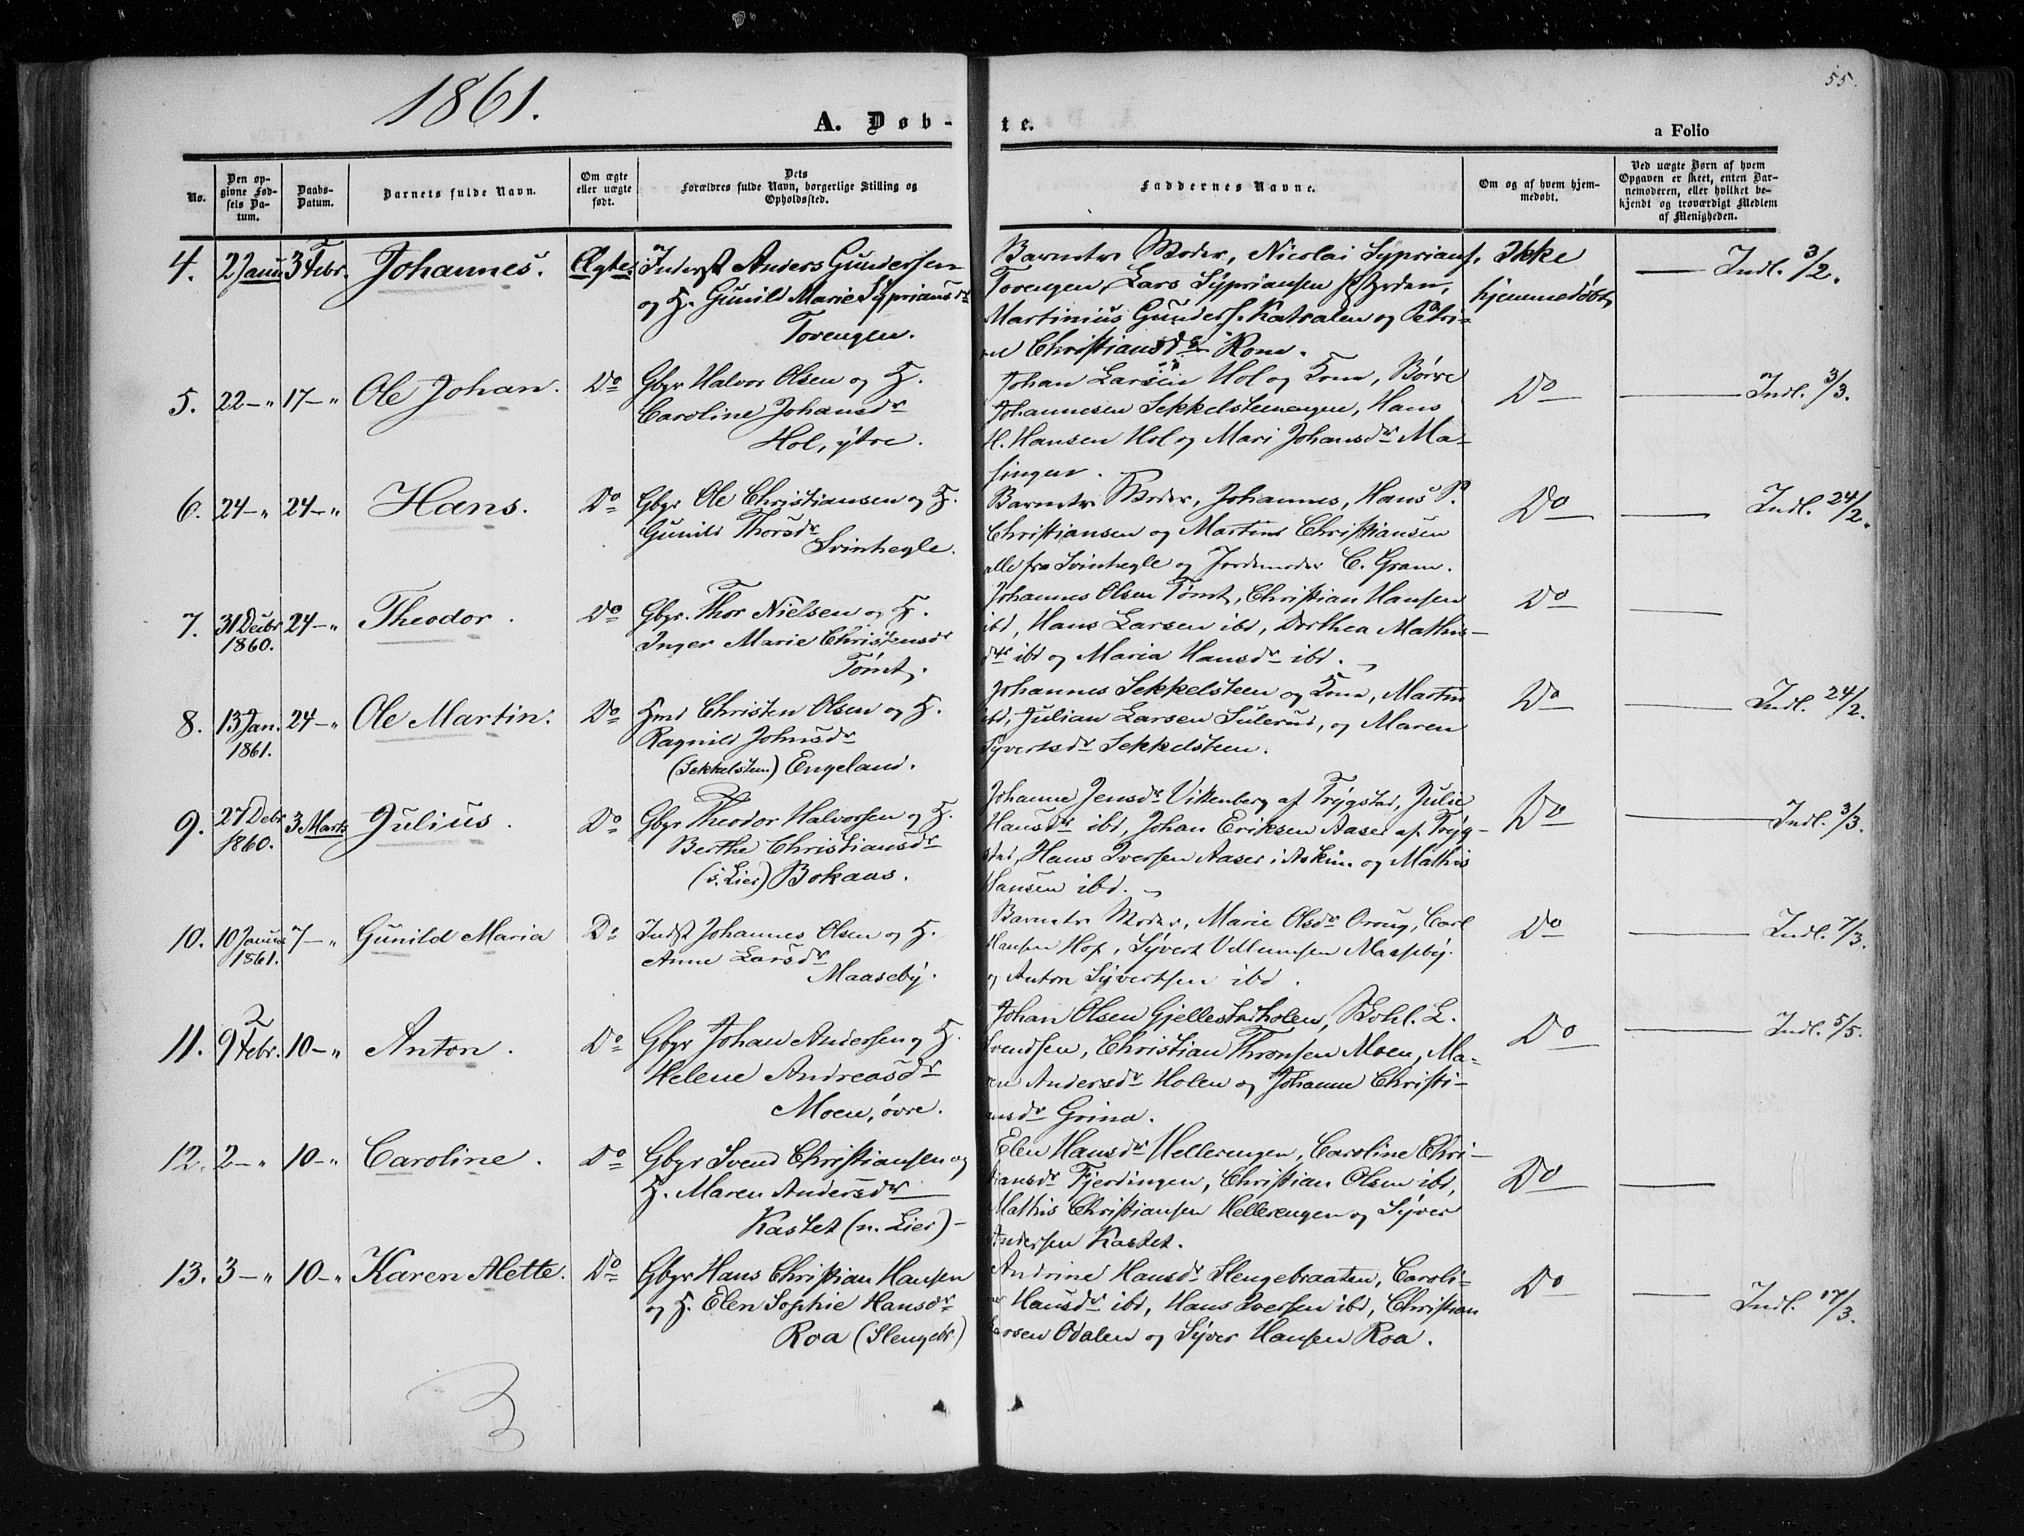 1861.
55.
A. Døb-
te.
a Folio
No.
Den op-
givne Fød-
sels Da-
tum.
Daabs-
Datum.
Barnets fulde Navn.
Om ægte
eller uægte
født.
Dets
Forældres fulde Navn, borgerlige Stilling og
Opholdssted.
Faddernes Navne.
Om og af hvem hjem-
medøbt.
Ved uægte Børn af hvem
Opgaven er skeet, enten Bar-
nemoderen, eller hvilket be-
kjendt og troværdigt Medlem
af Menigheden.
4. 2 Janu 3 Febr. Johannes. Ægte Inderst Anders Gundersen
og H. Gunild Marie Syprians dr
Torengen.
Barnets Moder, Nicolai Syprians.
Torengen, Lars Sypriansen
Martinius Gunders. Katralen og Petri-
ne Christiansdr Kone.
Ikke
hjemmedøbt
Indl. 3/2.
5. 22 – " 17 – " Ole Johan. Do Gbr Halvor Olsen og H.
Caroline Johansdr
Hol, ytre.
Johan Larsen Hol og Kone, Børre
Johannesen Sekkelsteenengen, Hans
H. Hansen Hol og Mari Johansdr Ma-
singen.
Do
Indl. 3/3.
6. 24 – " 24 – " Hans. Do Gbr Ole Christiansen og H.
Gunild Thorsdr
Svinhegle.
Barnets Moder, Johannes, Hans P.
Christiansen og Martin Christiansen
alle fra Svinhegle og Jordemoder C. Gram.
Do
Indl. 24/2.
7. 31 Decbr 1860. 24 – " Theodor. Do Gbr. Thor Nielsen og H.
Inger Marie Christensdr
Tømt.
Johannes Olsen Tømt, Christian Hansen
ibd, Hans Larsen ibd, Dorthea Mathis-
dtr ibd og Maria Hansdr ibd.
Do
8. 13 Jan. 1861. 24 – " Ole Martin. Do Hmd Christen Olsen og H.
Ragnild Johnsdr
(Sekkelsteen) Engeland.
Johannes Sekkelsteen og Kone, Martin
ibd, Julian Larsen Sulerud, og Maren
Syvertsdr Sekkelsteen.
Do
Indl. 24/2.
9. 27 Debr 1860. 3 Marts Julius. Do Gbr Theodor Halvorsen og H.
Berthe Christiansdr
(s. Lier) Bokaas.
Johanne Jensdr Vikenberg af Trygstad, Julie
Hansdr ibd, Johan Eriksen Aaser af Tryg-
stad, Hans Iversen Aaser i Askim og Mathis
Hansen ibd.
Do
Indl. 3/3.
10. 10 Janua 1861. 7 – " Gunild Maria Do Indst Johannes Olsen og H.
Anne Larsdr
Maaseby.
Barnets Moder, Marie Olsdr Oraug, Carl
Hansen Hof, Syvert Villumsen Maaseby
og Anton Syvertsen ibd.
Do
Indl. 7/3.
11. 2
9 Febr. 10 – " Anton. Do Gbr Johan Andersen og H.
Helene Andreasdr
Moen, øvre.
Johan Olsen Gjellestadholen, Bohl. L.
Svendsen, Christian Thronsen Moen, Ma-
ren Andersdr Holen og Johanne Christi-
ansdr Grina.
Do
Indl. 5/5.
12. 2 – " 10 – " Caroline. Do Gbr Svend Christiansen og
H. Maren Andersdr
Kastet (n. Lier) –
Elen Hansdr Hellerengen, Caroline Chri-
stiansdr Fjerdingen, Christian Olsen ibd,
Mathis Christiansen Hellerengen og Syver
Andersen Kastet.
Do
13. 3 – " 10 – " Karen Alette. Do Gbr Hans Christian Hansen
og H. Elen Sophie Hansdr
Roa (Slengebr)
Andrine Hansdr Slengebraaten, Caroli-
ne Hansdr ibd, Hans Iversen ibd, Christian
Larsen Odalen og Syver Hansen Roa.
Do
Indl. 17/3.